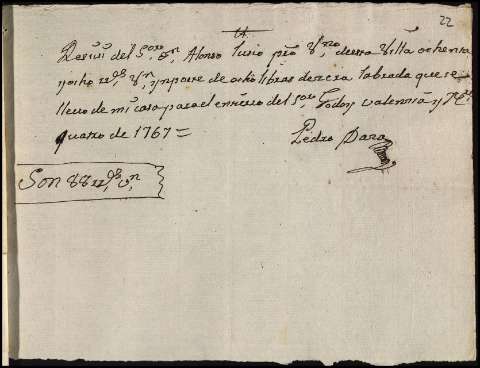 22
Resiui del S.or D.n Alonso lusio pro V.no desta Villa ochenta
y ocho rr.s V.n, ynporte de ocho libras de zera labrada que se
lleuo de mi casa para el entierro del S.or Godoy valenzia y
quatro de 1767 =
Pedro Daza
Son 88 rr.s V.n